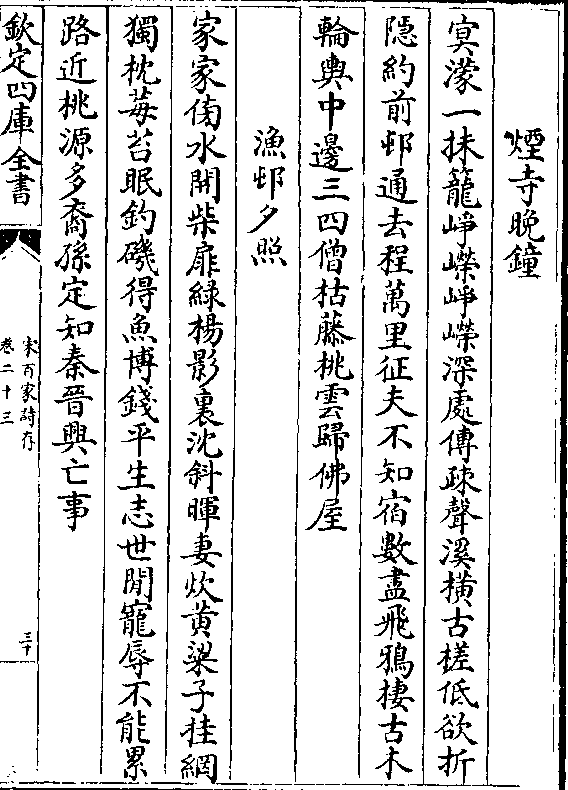 煙寺晚鐘
冥濛一抹籠崢嶸崢嶸深處傳疎聲溪橫古槎低欲折
隱約前邨通去程萬里征夫不知宿數盡飛鴉棲古木
輪輿中邊三四僧枯藤桃雲歸佛屋
漁邨夕照
家家傍水開柴扉綠楊影裏沈斜暉妻炊黄粱子挂網
獨枕莓苔眠釣磯得魚博錢平生志世閒寵辱不能累
路近桃源多裔孫定知秦晉興亡事
欽定四庫全書
宋百家詩存
卷二十三
三十